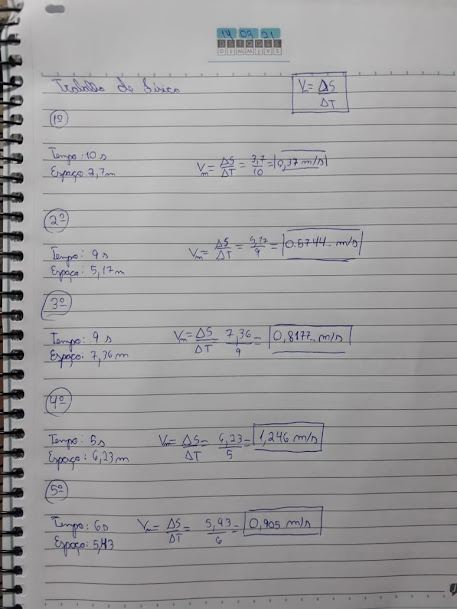 1º
14 09 21
D S T Q Q S S
D L M M J V S
Trabalho de Física
Vm = ΔS/ΔT
1º
Tempo: 10 s
Espaço: 3,7m
Vm = ΔS/ΔT = 3,7/10 = 0,37 m/s
2º
Tempo: 9 s
Espaço: 5,17m
Vm = ΔS/ΔT = 5,17/9 = 0.5744... m/s
3º
Tempo: 9 s
Espaço: 7,36 m
Vm = ΔS/ΔT 7,36/9 = 0,8177... m/s
4º
Tempo: 5s
Espaço: 6,23 m
Vm = ΔS/ΔT = 6,23/5 = 1,246 m/s
5º
Tempo: 6s
Espaço: 5,43
Vm = ΔS/ΔT = 5,43/6 = 0,905 m/s